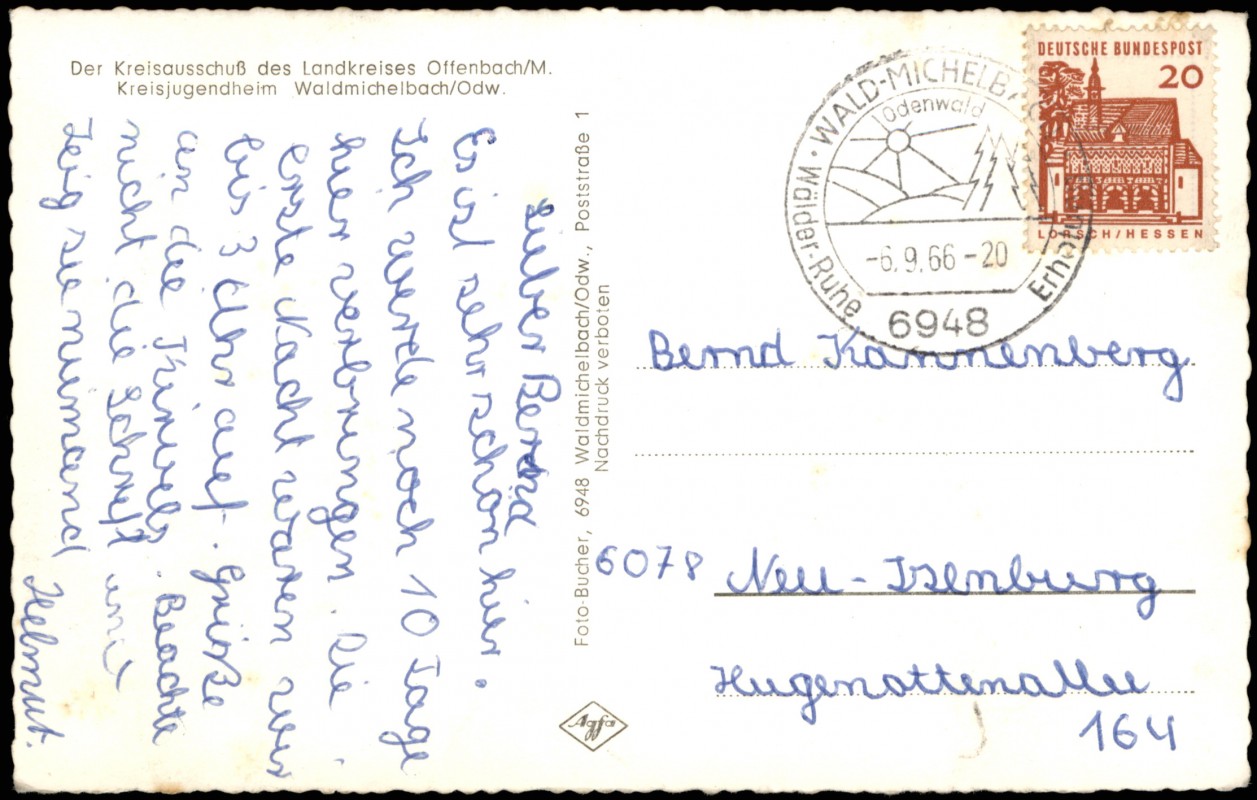 Der Kreisausschuß des Landkreises Offenbach/M.
Kreisjugendheim Waldmichelbach/Odw.
Lieber Bernd
Es ist sehr schön hier.
Ich werde noch 10 Tage
hier verbringen. Die
erste Nacht waren wir
bis 3 Uhr auf. Grüße
an die Kinder. Beachte
nicht die Schrift und
zeig sie niemand
Helmut.
Foto-Bucher, 6948 Waldmichelbach/Odw., Poststraße 1
Nachdruck verboten
Agfa
WALD-MICHELBACH
Odenwald
Wälder-Ruhe
Erholung
-6.9.66-20
6948
DEUTSCHE BUNDESPOST
20
LORSCH/HESSEN
Bernd Kannenberg
6078 Neu-Isenburg
Hugenottenallee
164